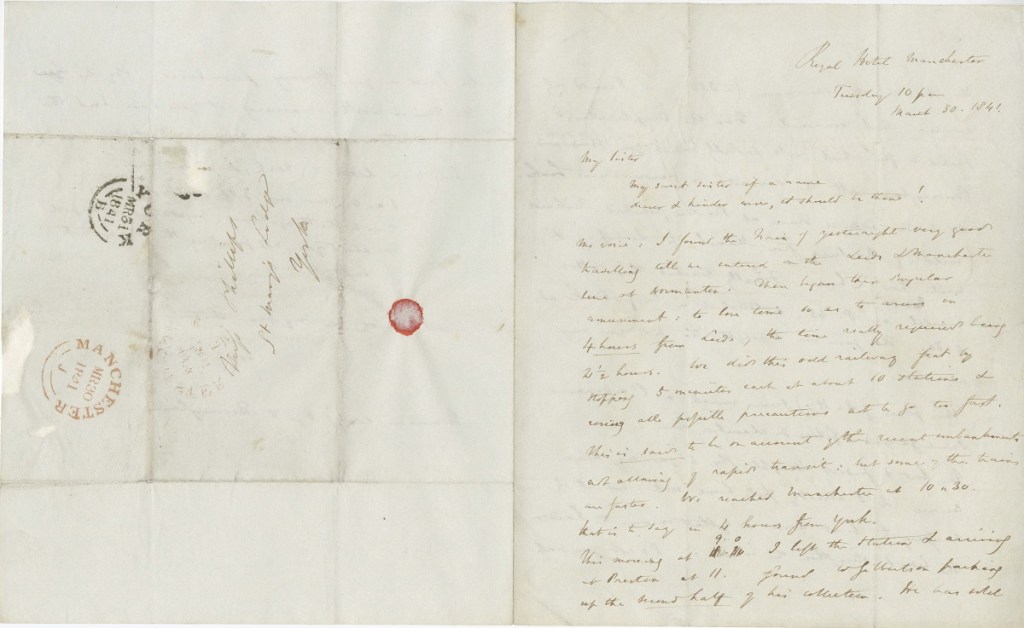 YORK
MR 31
1841
B
MANCHESTER
MR 30
1841
J
Miss Phillips
St Mary's Lodge
York
Royal Hotel Manchester
Tuesday 10 pm
March 30. 1841.
My Sister
My sweet sister if a name
dearer & kinder were, it should be thine!
Me voici: I found the train of yesternight very good
travelling till we entered on the Leeds & Manchester
line at Normanton. Then began their singular
amusement: to lose time so as to arrive in
4 hours from Leeds, the time really required being
2 1/2 hours. We did this odd railway feat by
stopping 5 minutes each at about 10 stations &
using all possible precautions not to go too fast.
This is said to be on account of the recent embankments
not allowing of rapid transit: but some of the trains
are faster. We reached Manchester at 10.30.
that is to say in 4 hours from York.
This morning at 9.0 I left the station & arriving
at Preston at 11. found Gilbertson packing
up the second half of his collection. He has sold